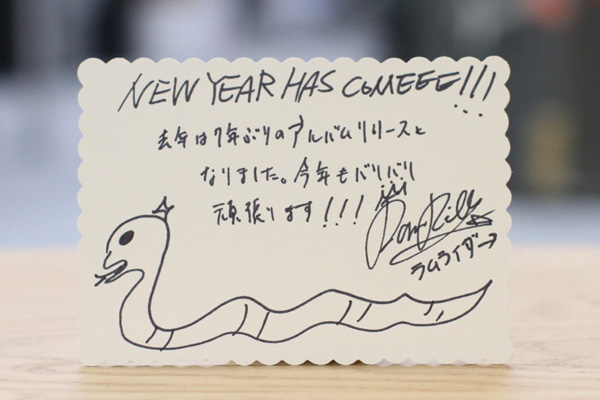 NEW YEAR HAS COMEEEE!!!
去年は7年ぶりのアルバムリリースと
なりました。今年もバリバリ
頑張ります!!!
Ram Rider
ラムライダー